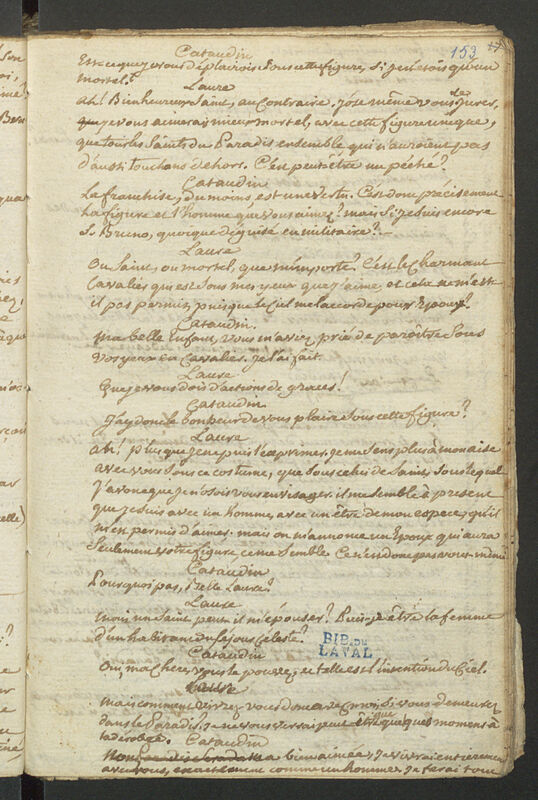 153
Cataudin
Est-ce que je vous déplairois sous cette figure, si je n'étois qu'un
mortel?
Laure
Ah! Bienheureux Saint, au contraire. j'ose même vous le jurer,
que je vous aimerais mieux mortel, avec cette figure unique,
que tous les Saints du Paradis ensemble qui n'auroient pas
d'aussi touchans dehors. C'est peut être un péché?
Cataudin
La franchise, du moins, est une vertu. C'est donc précisement
la figure et l'homme que vous aimez? mais si je suis encore
S. Bruno, quoique déguisé en militaire?
Laure
Ou Saint, ou mortel, que m'importe? C'est le charmant
Cavalier qui est sous mes yeux que j'aime, et cela ne m'est
il pas permis, puisque le Ciel me l'accorde pour Epoux?
Cataudin.
ma belle Enfant, vous m'aviez prié de paroître sous
vos yeux en Cavalier. je l'ai fait
Laure
Que je vous dois d'actions de graces!
Cataudin
J'ay donc le bonheur de vous plaire sous cette figure?
Laure
Ah! plus que je ne puis l'exprimer. je me sens plus à mon aise
avec vous sous ce costume, que sous celui de Saint, sous lequel
j'avoue que je n'osois vous envisager. il me semble à présent
que je suis avec un homme, avec un être de mon espece, qu'il
m'est permis d'aimer. mais on m'annonce un Epoux qui aura
seulement votre figure ce me semble. Ce n'est donc pas vous-même
Cataudin
Pourquoi pas, Belle Laure?
Laure
Quoi un Saint peut il m'épouser? Puis-je être la femme
d'un habitant du séjour Céleste?
BIB. DE
LAVAL
Cataudin
Oui, ma chere, vous le pouvez, et telle est l'intention du Ciel.
Laure
mais comment vivrez vous donc avec moi. Si vous demeurez
dans le Paradis, je ne vous verrai peut etre que quelques momens à
la dérobée.
Cataudin
bien aimée, je vivrai entierement
avec vous, exactement comme un homme. je serai tout